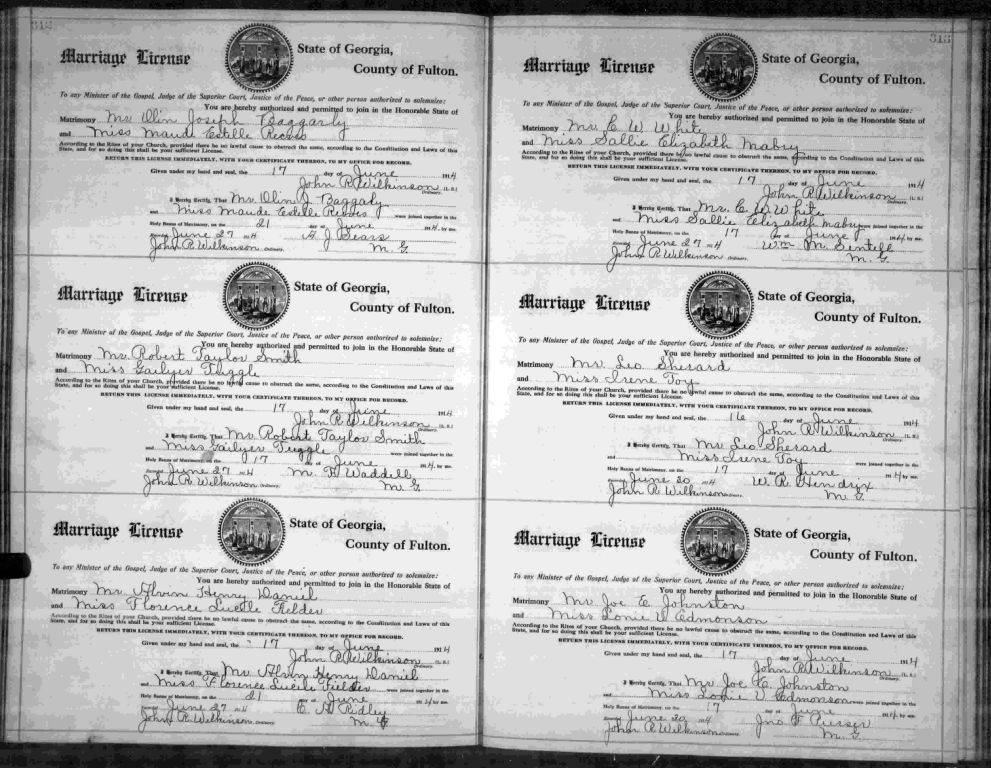 312
Marriage License
State of Georgia,
County of Fulton.
To any Minister of the Gospel, Judge of the Superior Court, Justice of the Peace, or other person authorized to solemnize:
You are hereby authorized and permitted to join in the Honorable State of
Matrimony Mr. Olin Joseph Baggarly
and Miss Maude Estelle Reeves
According to the Rites of your Church, provided there be no lawful cause to obstruct the same, according to the Constitution and Laws of this
State, and for so doing this shall be your sufficient License.
RETURN THIS LICENSE IMMEDIATELY, WITH YOUR CERTIFICATE THEREON, TO MY OFFICE FOR RECORD.
Given under my hand and seal, the 17 day of June 1914
John R. Wilkinson (L. S.)
Ordinary.
I Hereby Certify, That Mr. Olin J. Baggaly
and Miss Maude Estelle Reeves were joined together in the
Holy Banns of Matrimony, on the 21 day of June 1914 by me.
June 27 1914 A. J. Sears
John R. Wilkinson Ordinary. M. G.
Marriage License
State of Georgia,
County of Fulton.
To any Minister of the Gospel, Judge of the Superior Court, Justice of the Peace, or other person authorized to solemnize:
You are hereby authorized and permitted to join in the Honorable State of
Matrimony Mr. Robert Taylor Smith
and Miss Gailyer Tuggle
According to the Rites of your Church, provided there be no lawful cause to obstruct the same, according to the Constitution and Laws of this
State, and for so doing this shall be your sufficient License.
RETURN THIS LICENSE IMMEDIATELY, WITH YOUR CERTIFICATE THEREON, TO MY OFFICE FOR RECORD.
Given under my hand and seal, the 17 day of June 1914
John R. Wilkinson (L. S.)
Ordinary.
I Hereby Certify, That Mr. Robert Taylor Smith
and Miss Gailyer Tuggle were joined together in the
Holy Banns of Matrimony, on the 17 day of June 1914 by me.
June 27 1914 M. H. Waddell
John R. Wilkinson Ordinary. M. G.
Marriage License
State of Georgia,
County of Fulton.
To any Minister of the Gospel, Judge of the Superior Court, Justice of the Peace, or other person authorized to solemnize:
You are hereby authorized and permitted to join in the Honorable State of
Matrimony Mr. Alvin Henry Daniel
and Miss Florence Lucile Fielder
According to the Rites of your Church, provided there be no lawful cause to obstruct the same, according to the Constitution and Laws of this
State, and for so doing this shall be your sufficient License.
RETURN THIS LICENSE IMMEDIATELY, WITH YOUR CERTIFICATE THEREON, TO MY OFFICE FOR RECORD.
Given under my hand and seal, the 17 day of June 1914
John R. Wilkinson (L. S.)
Ordinary.
I Hereby Certify, That Mr. Alvin Henry Daniel
and Miss Florence Lucile Fielder were joined together in the
Holy Banns of Matrimony, on the 21 day of June 1914 by me.
June 27 1914 C. A. Ridley
John R. Wilkinson Ordinary. M. G.
313
Marriage License
State of Georgia,
County of Fulton.
To any Minister of the Gospel, Judge of the Superior Court, Justice of the Peace, or other person authorized to solemnize:
You are hereby authorized and permitted to join in the Honorable State of
Matrimony Mr. E. W. White
and Miss Sallie Elizabeth Mabry
According to the Rites of your Church, provided there be no lawful cause to obstruct the same, according to the Constitution and Laws of this
State, and for so doing this shall be your sufficient License.
RETURN THIS LICENSE IMMEDIATELY, WITH YOUR CERTIFICATE THEREON, TO MY OFFICE FOR RECORD.
Given under my hand and seal, the 17 day of June 1914
John R. Wilkinson (L. S.)
Ordinary.
I Hereby Certify, That Mr. E. W. White
and Miss Sallie Elizabeth Mabry were joined together in the
Holy Banns of Matrimony, on the 17 day of June 1914 by me.
June 27 1914 Wm. M. Sentell
John R. Wilkinson Ordinary. M. G.
Marriage License
State of Georgia,
County of Fulton.
To any Minister of the Gospel, Judge of the Superior Court, Justice of the Peace, or other person authorized to solemnize:
You are hereby authorized and permitted to join in the Honorable State of
Matrimony Mr. Leo Sherard
and Miss Irene Toy
According to the Rites of your Church, provided there be no lawful cause to obstruct the same, according to the Constitution and Laws of this
State, and for so doing this shall be your sufficient License.
RETURN THIS LICENSE IMMEDIATELY, WITH YOUR CERTIFICATE THEREON, TO MY OFFICE FOR RECORD.
Given under my hand and seal, the 16 day of June 1914
John R. Wilkinson (L. S.)
Ordinary.
I Hereby Certify, That Mr Leo Sherard
and Miss Irene Toy were joined together in the
Holy Banns of Matrimony, on the 17 day of June 1914 by me.
June 20 1914 W. R. Hendrix
John R. Wilkinson Ordinary. M. G.
Marriage License
State of Georgia,
County of Fulton.
To any Minister of the Gospel, Judge of the Superior Court, Justice of the Peace, or other person authorized to solemnize:
You are hereby authorized and permitted to join in the Honorable State of
Matrimony Mr. Joe E. Johnston
and Miss Lonie V. Edmonson
According to the Rites of your Church, provided there be no lawful cause to obstruct the same, according to the Constitution and Laws of this
State, and for so doing this shall be your sufficient License.
RETURN THIS LICENSE IMMEDIATELY, WITH YOUR CERTIFICATE THEREON, TO MY OFFICE FOR RECORD.
Given under my hand and seal, the 17 day of June 1914
John R. Wilkinson (L. S.)
Ordinary.
I Hereby Certify, That Mr. Joe E. Johnston
and Miss Lonie V. Edmonson were joined together in the
Holy Banns of Matrimony, on the 17 day of June 1914 by me.
June 20 1914 Jno. F. Purser
John R. Wilkinson Ordinary. M. G.